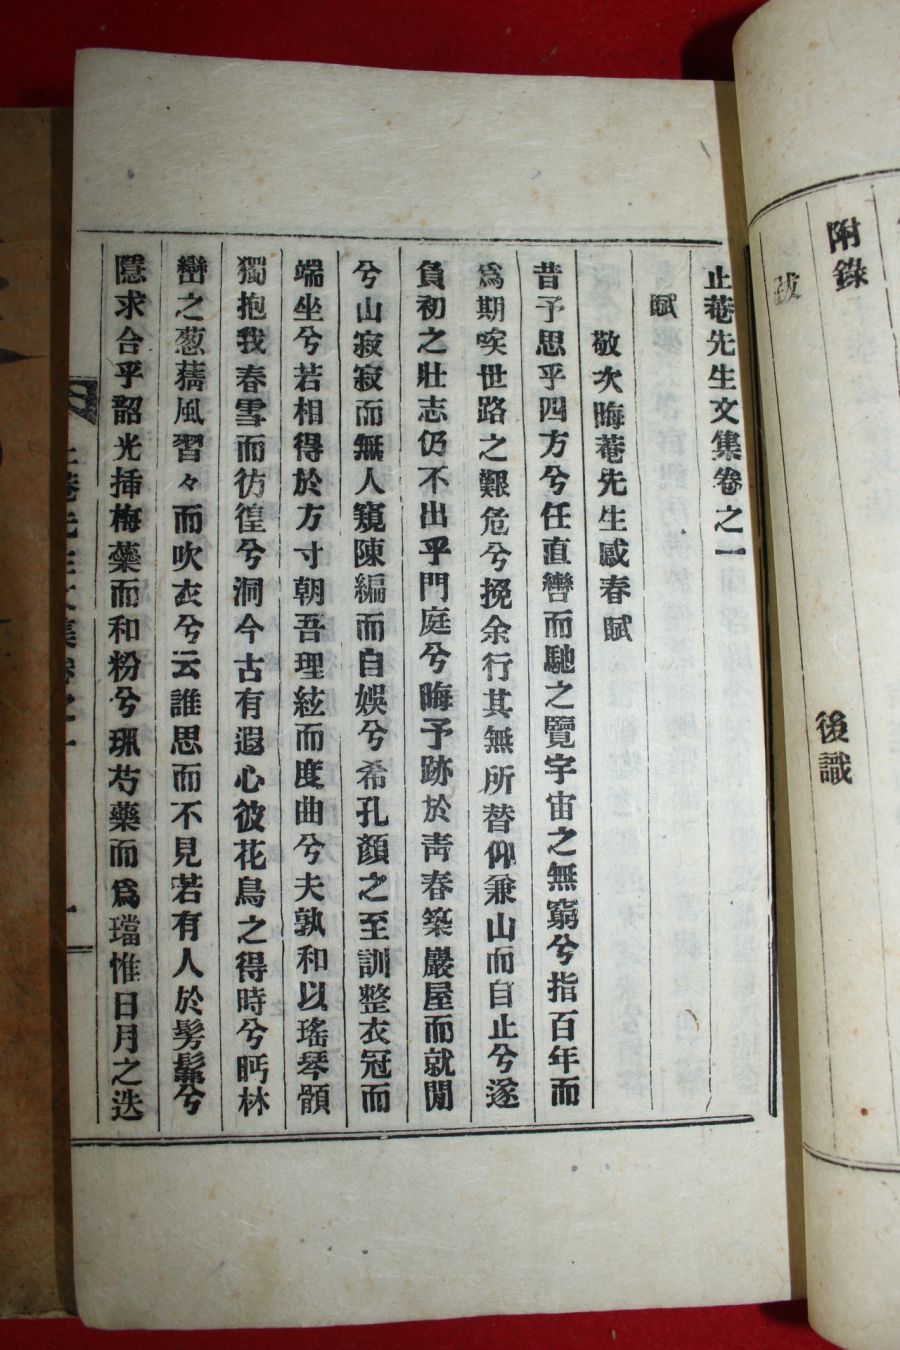 附錄
跋
後識
止菴先生文集卷之一
賦
敬次晦菴先生感春賦
昔予思乎四方兮任直轡而馳之覽宇宙之無窮兮指百年而
爲期唉世路之艱危兮挽余行其無所替仰兼山而自止兮遂
負初之壯志仍不出乎門庭兮晦予跡於靑春築巖屋而就閒
兮山寂寂而無人窺陳編而自娛兮希孔顔之至訓整衣冠而
端坐兮若相得於方寸朝吾理絃而度曲兮夫孰和以瑤琴顧
獨抱我春雪而彷徨兮洞今古有遐心彼花鳥之得時兮眄林
巒之葱蒨風習々而吹衣兮云誰思而不見若有人於髣髴兮
隱求合乎韶光揷梅蘂而和粉兮珮芍藥而爲璫惟日月之迭
止菴先生文集卷之一
一